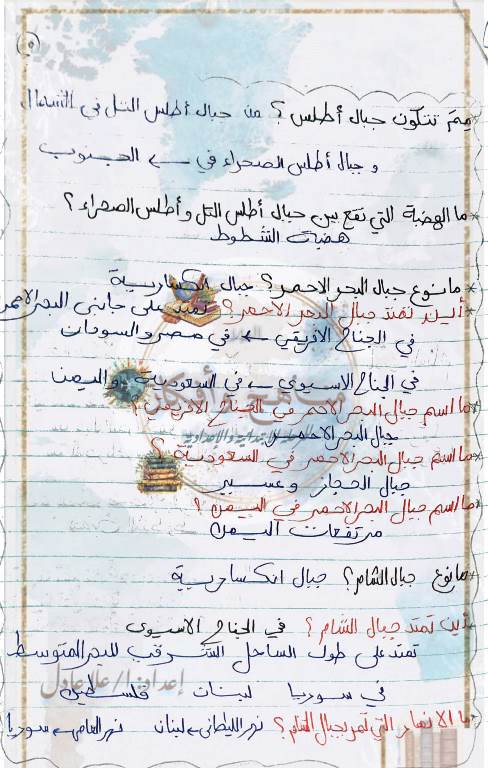 (٥)
* مِمَ تتكون جبال أطلس؟ من جبال أطلس التل في الشمال
و جبال أطلس الصحراء في ← الجنوب
* ما الهضبة التي تقع بين جبال أطلس التل و أطلس الصحراء؟
هضبة الشطوط
* ما نوع جبال البحر الاحمر؟ جبال انكسارية
* أين تمتد جبال البحر الاحمر؟ تمتد على جانبى البحر الاحمر
في الجناح الافريقي ← في مصر والسودان
في الجناح الاسيوى ← في السعودية واليمن
* ما اسم جبال البحر الاحمر في الجناح الافريقي؟
جبال البحر الاحمر
* ما اسم جبال البحر الاحمر في السعودية؟
جبال الحجاز وعسير
* ما اسم جبال البحر الاحمر في اليمن؟
مرتفعات اليمن
* ما نوع جبال الشام؟ جبال انكسارية
* أين تمتد جبال الشام؟ في الجناح الاسيوى
تمتد على طول الساحل الشرقي للبحر المتوسط
إعداد / علا عادل
في سوريا لبنان فلسطين
* ما الانهار التي تمر بجبال الشام؟ نهر الليطانى ← لبنان نهر العاصى ← سوريا